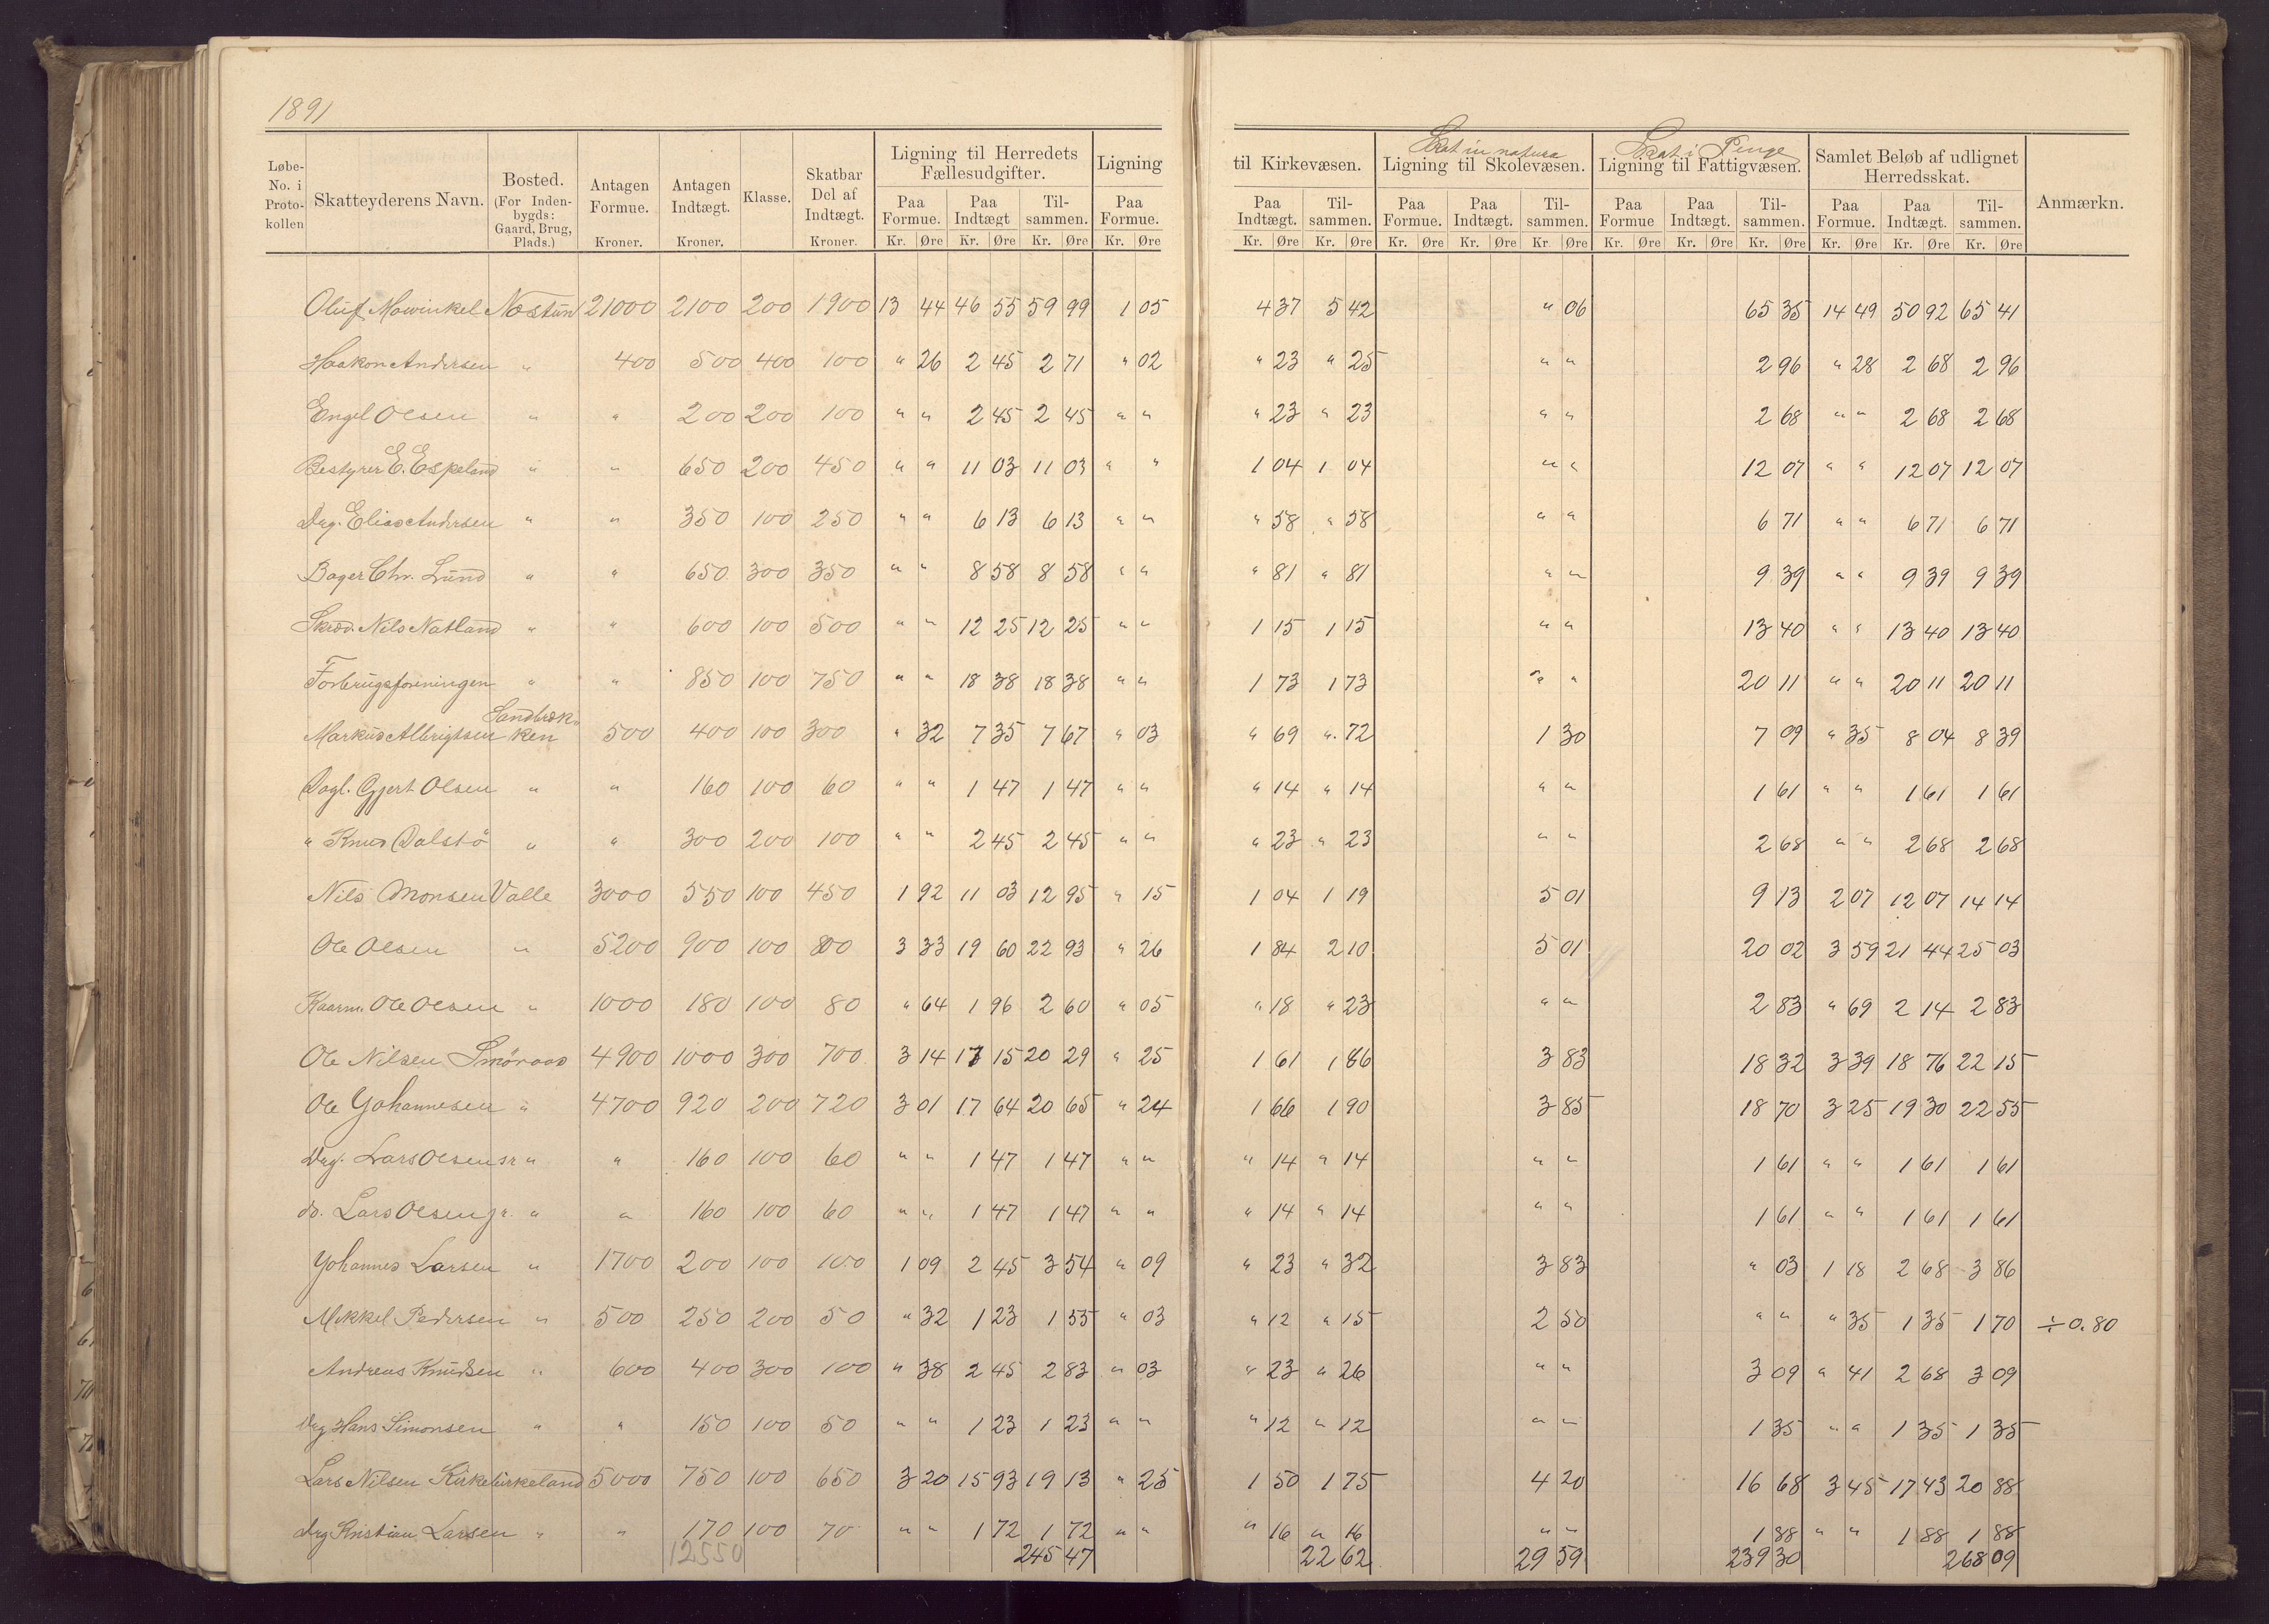 1891
Løbe-No. i Proto-kollen | Skatteyderens Navn. | Bosted. (For Indenbygds: Gaard, Brug, Plads.) | Antagen Formue. Kroner. | Antagen Indtægt. Kroner. | Klasse. | Skatbar Del af Indtægt. Kroner. | Ligning til Herredets Fællesudgifter. Paa Formue. Kr. Øre | Paa Indtægt Kr. Øre | Tilsammen. Kr. Øre | Ligning til Kirkevæsen. Paa Formue. Kr. Øre | Paa Indtægt. Kr. Øre | Tilsammen. Kr. Øre | Skat in natura Ligning til Skolevæsen. Paa Formue. Kr. Øre | Paa Indtægt. Kr. Øre | Tilsammen. Kr Øre | Skat i Penge Ligning til Fattigvæsen. Paa Formue Kr. Øre | Paa Indtægt. Kr. Øre | Tilsammen. Kr. Øre | Samlet Beløb af udlignet Herredsskat. Paa Formue. Kr. Øre | Paa Indtægt. Kr. Øre | Tilsammen. Kr. Øre | Anmærkn.
Oluf Mowinkel Nestun 21000 2100 200 1900 13 44 46 55 59 99 1 05 4 37 5 42 " 06 65 35 14 49 50 92 65 41
Haakon Andersen " 400 500 400 100 " 26 2 45 2 71 " 02 " 23 " 25 " " 2 96 " 28 2 68 2 96
Engel Olsen " " 200 200 100 " " 2 45 2 45 " " " 23 " 23 " " 2 68 " " 2 68 2 68
Bestyrer E. Espeland " " 650 200 450 " " 11 03 11 03 " " 1 04 1 04 " " 12 07 " " 12 07 12 07
Dag. Elias Andersen " " 350 100 250 " " 6 13 6 13 " " " 58 " 58 " " 6 71 " " 6 71 6 71
Bager Chr. Lund " " 650 300 350 " " 8 58 8 58 " " " 81 " 81 " " 9 39 " " 9 39 9 39
Skræd. Nils Natland " " 600 100 500 " " 12 25 12 25 " " 1 15 1 15 " " 13 40 " " 13 40 13 40
Forbrugsforeningen " " 850 100 750 " " 18 38 18 38 " " 1 73 1 73 " " 20 11 " " 20 11 20 11
Markus Albrigtsen Sandbrækken 500 400 100 300 " 32 7 35 7 67 " 03 " 69 " 72 1 30 7 09 " 35 8 04 8 39
Dagl. Gjert Olsen " " 160 100 60 " " 1 47 1 47 " " " 14 " 14 " " 1 61 " " 1 61 1 61
" Knud Dalstø " " 300 200 100 " " 2 45 2 45 " " " 23 " 23 " " 2 68 " " 2 68 2 68
Nils Monsen Valle 3000 550 100 450 1 92 11 03 12 95 " 15 1 04 1 19 5 01 9 13 2 07 12 07 14 14
Ole Olsen " 5200 900 100 800 3 33 19 60 22 93 " 26 1 84 2 10 5 01 20 02 3 59 21 44 25 03
Kaarm. Ole Olsen " 1000 180 100 80 " 64 1 96 2 60 " 05 " 18 " 23 " " 2 83 " 69 2 14 2 83
Ole Nilsen Smöraas 4900 1000 300 700 3 14 17 15 20 29 " 25 1 61 1 86 3 83 18 32 3 39 18 76 22 15
Ole Johannesen " 4700 920 200 720 3 01 17 64 20 65 " 24 1 66 1 90 3 85 18 70 3 25 19 30 22 55
Dag. Lars Olsen sr " " 160 100 60 " " 1 47 1 47 " " " 14 " 14 " " 1 61 " " 1 61 1 61
do. Lars Olsen jr. " " 160 100 60 " " 1 47 1 47 " " " 14 " 14 " " 1 61 " " 1 61 1 61
Johannes Larsen " 1700 200 100 100 1 09 2 45 3 54 " 09 " 23 " 32 3 83 " 03 1 18 2 68 3 86
Mikkel Pedersen " 500 250 200 50 " 32 1 23 1 55 " 03 " 12 " 15 2 50 " " " 35 1 35 1 70 ÷ 0.80
Andreas Knudsen " 600 400 300 100 " 38 2 45 2 83 " 03 " 23 " 26 " " 3 09 " 41 2 68 3 09
Dag Hans Simonsen " " 150 100 50 " " 1 23 1 23 " " " 12 " 12 " " 1 35 " " 1 35 1 35
Lars Nilsen Kirkebirkeland 5000 750 100 650 3 20 15 93 19 13 " 25 1 50 1 75 4 20 16 68 3 45 17 43 20 88
Dag Kristian Larsen " " 170 100 70 " " 1 72 1 72 " " " 16 " 16 " " 1 88 " " 1 88 1 88
12550 245 47 22 62 29 59 239 30 268 09